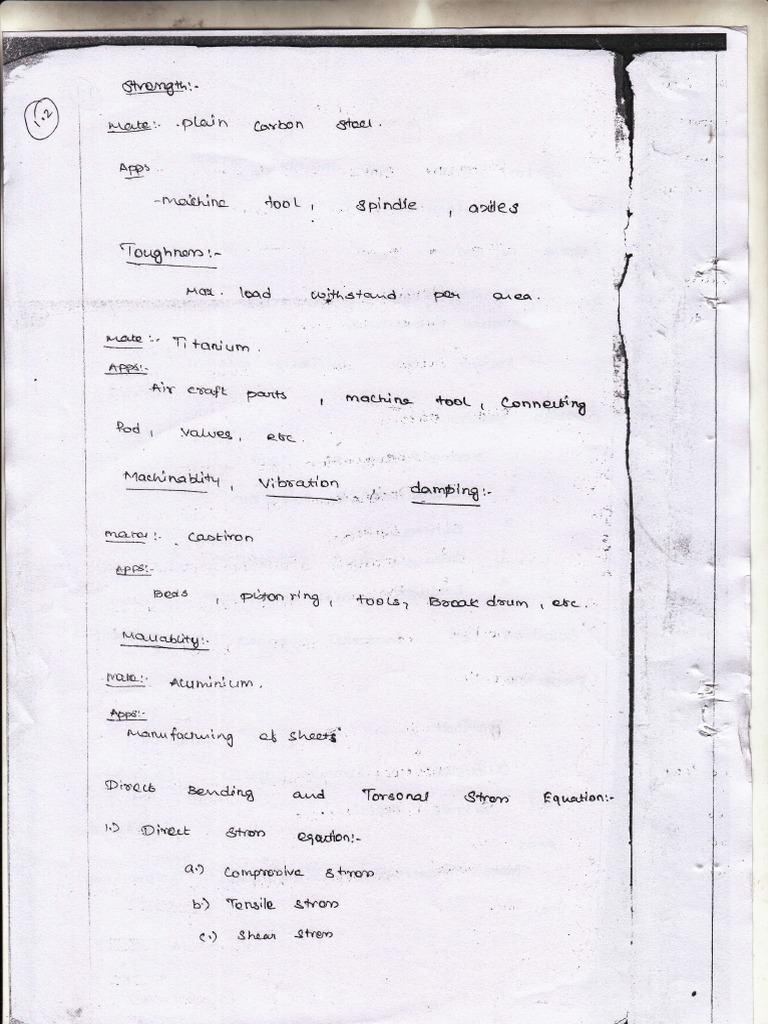 1.2
Strength:-
Mate:- Plain Carbon Steel.
Apps
- Machine tool, spindle, axles
Toughness:-
Max. load withstand per area.
Mate:- Titanium.
Apps:-
Air craft parts, machine tool, Connecting
Rod, valves, etc.
Machinablity, Vibration, damping:-
Mate:- Castiron
Apps:-
Beds, piston ring, tools, Break drum, etc.
Mallablity:-
Mate:- Aluminium.
Apps:-
Manufacturing of sheets
Direct Bending and Torsonal Stress Equation:-
1.) Direct stress eqation:-
a.) Compressive stress
b.) Tensile stress
c.) Shear stress